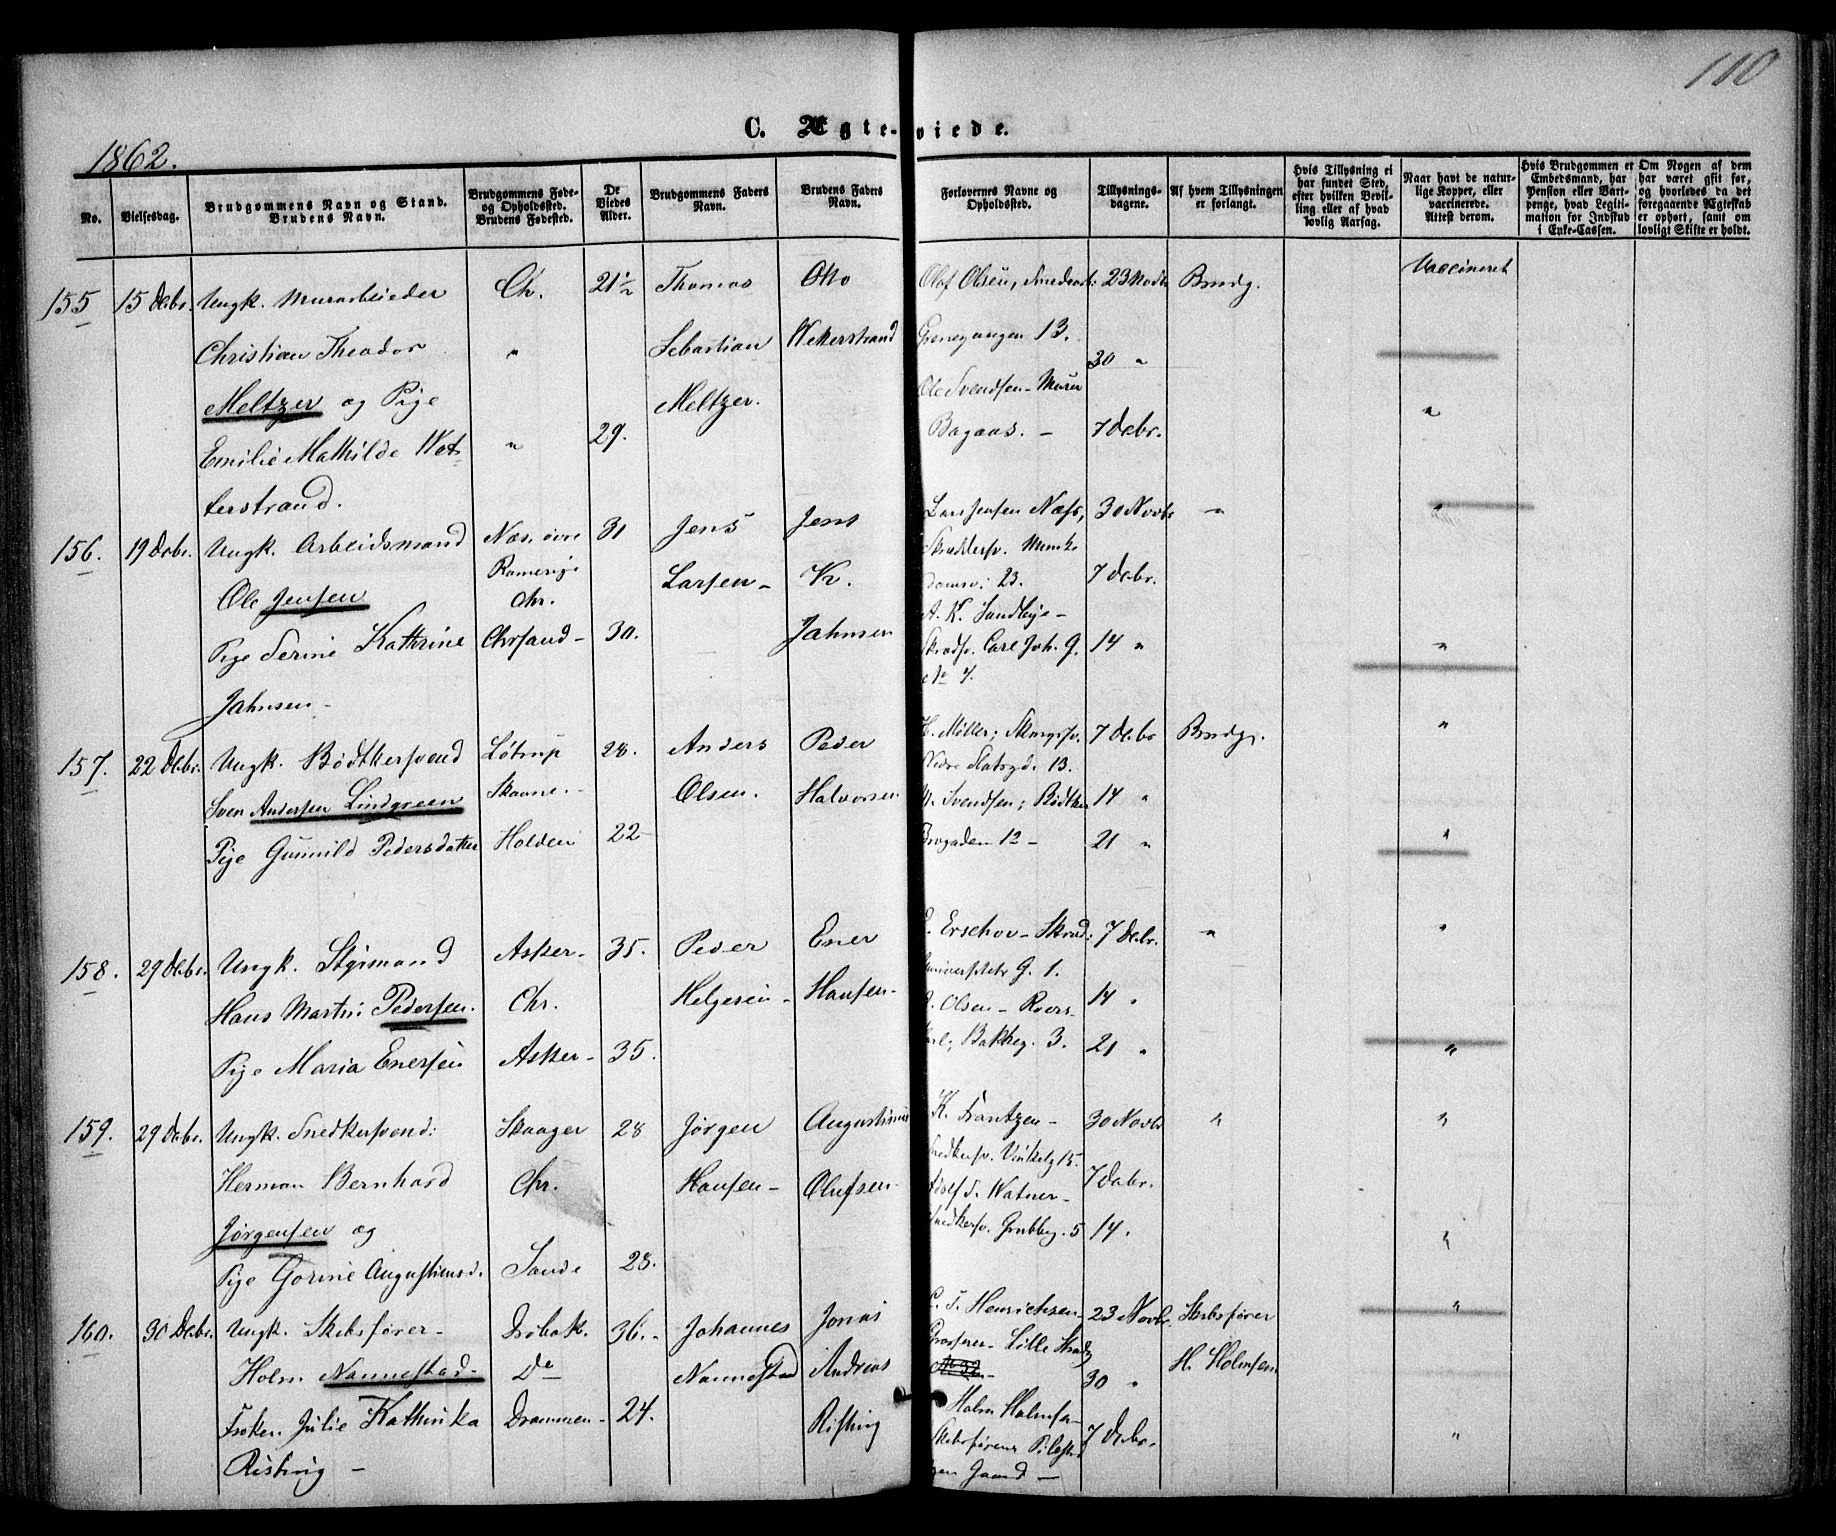 110
C. Ægte-viede.
1862.
No.
Vielsesdag.
Brudgommens Navn og Stand.
Brudens Navn.
Brudgommens Føde-
og Opholdssted.
Brudens Fødested.
De
Viedes
Alder.
Brudgommens Faders
Navn.
Brudens Faders
Navn.
Forlovernes Navne og
Opholdssted.
Tillysnings-
dagene.
Af hvem Tillysningen
er forlangt.
Hvis Tillysning ei
har fundet Sted,
efter hvilken Bevil-
ling eller af hvad
lovlig Aarsag.
Naar havt de natur-
lige Kopper, eller
vaccinerede.
Attest derom.
Hvis Brudgommen er
Embedsmand, har
Pension eller Vart-
penge, hvad Legiti-
mation for Indskud
i Enke-Cassen.
Om Nogen af dem
har været gift før,
og hvorledes da det
foregaaende Ægteskab
er ophørt, samt om
lovligt Skifte er holdt.
155 15 Debr. Ungk. Murarbeider Ch. 21½ Thomas Otto Olof Olsen, 23 Novbr Brudg. Vaccineret
Christian Theodor " Sebastian Wetterstrand Grønegangen 13. 30 "
Meltzer og Pige Meltzer. Ole Svendsen - Murer "
Emilie Mathilde Wet- " 29. Bagaas. - 7 Debr.
terstrand.
156. 19 Debr. Ungk. Arbeidsmand Næs, øvre 31 Jens Jens Lars Jensen Næss, 30 Novbr " "
Ole Jensen Romerige Larsen - Kr. Skræddersv. Munke
Chr. damsv: 23. 7 Debr.
Pige Serine Kathrine Chrsand - 30. Jahnsen Carl Joh. G. 14 " "
Jahnsen - No 7.
157. 22 Debr. Ungk. Bødtkersvend Løtrup 28. Anders Peder H. Møller; 7 Debr Brudg. "
Sven Andersen Lindgreen Skaane. - Olsen. Halvorsen Nedre Slotsgd. 13. 14 "
Pige Gunnild Pedersdatter Holden 22 Svendsen; Bødtker 21 " "
Brogaden 12 -
158. 29 Debr. Ungk. Stymand Asker - 35. Peder Ener Erschov - Skræd: 7 Debr. " "
Hans Martin Pedersen. Chr. Helgesen - Hansen - Universitets G. 1. 14 "
Olsen - Roers-
Pige Maria Enersen Asker - 35. karl; Bakkeg. 3. 21 " "
159. 29 Debr. Ungk. Snedkersvend: Skaager 28 Jørgen Augustinus K. Frantzen - 30 Novbr " "
Herman Bernhard Chr. Hansen - Olufsen - Snedkersv. Vinkelg 15. 7 Debr.
Jørgensen og Adolf F. Watner -
Snedkersv. Grubbeg. 5 14. "
Pige Gorine Augustinusd. Sande 28.
160. 30 Debr. Ungk. Skibsfører - Drøbak. 36. - Johannes Jonas C. F. Henrichsen - 23 Novbr. Skibsfører "
Holm Nannestad - Do Nannestad Andreas Grosserer - Lille Strandg 30 " H. Holmsen
No 32 -
Frøken Julie Kathinka Drammen - 24. Risting Holm Holmsen 7 Debr. "
Risting - Skibsfører
Gaard -